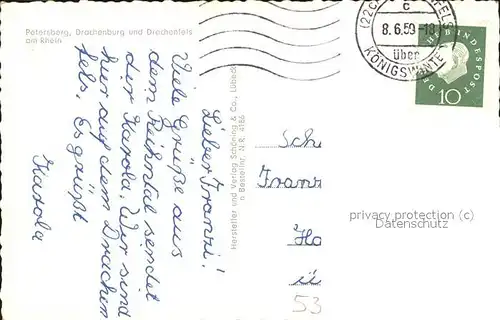 Petersberg, Drachenburg und Drachenfels
am Rhein
Lieber Franzi!
Viele Grüße aus
dem Rheintal sendet
dir Karola. Wir sind
hier auf dem Drachen
fels. Es grüßt
Karola
Hersteller und Verlag Schöning & Co., Lübeck
n Bestellnr. N.R. 4186
(22c)
FELS
c
8.6.59-18
über
KÖNIGSWINTE
DEUTSCHE BUNDESPOST
10
Sch
Franz
Ho
ü
53
privacy protection (c)
Datenschutz